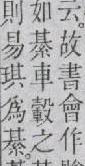 云故書會作
如綦車轂之
則易琪爲綦